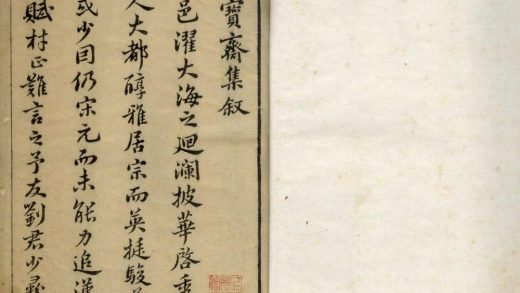 寶齋集叙
邑濯大海之迴瀾披華啓秀
人大都醇雅居宗而英挺駿
或少因仍宋元而未能力追漢
賦材正難言之予友劉君少彝